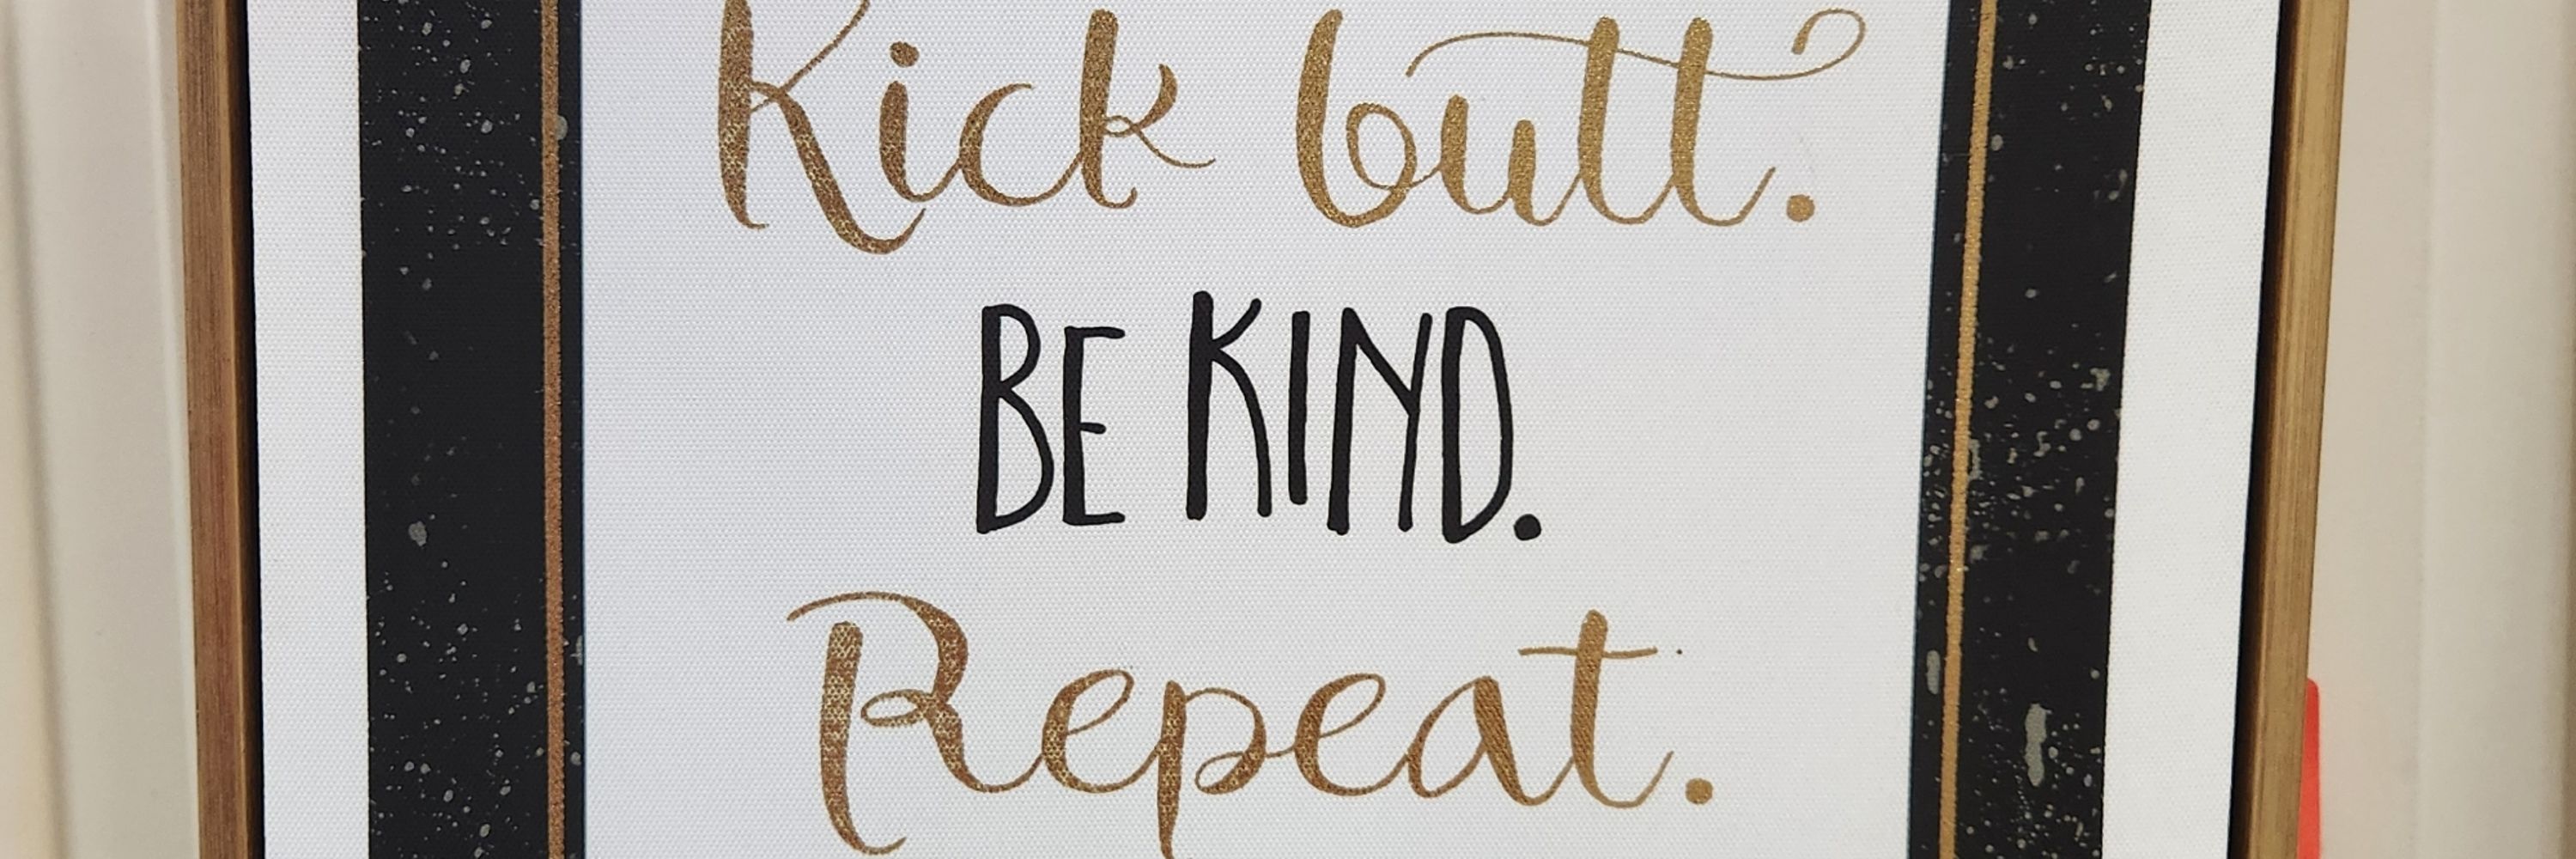 Kick butt.
BE KIND.
Repeat.